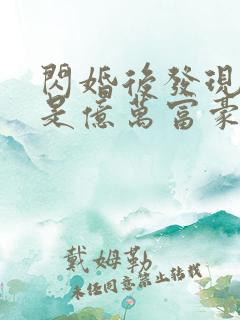 閃婚後發現
是億萬富豪
戴姆勒
未經同意禁止轉載